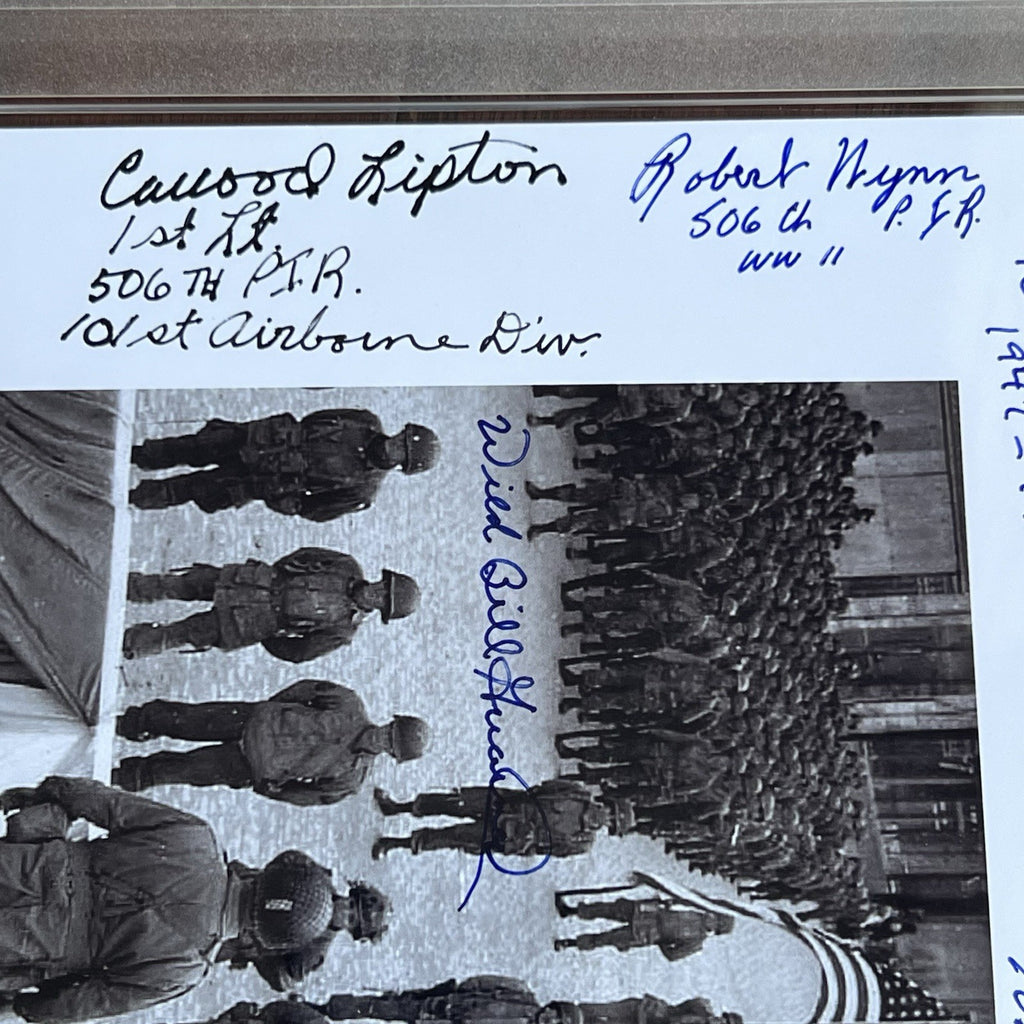 Carwood Lipton
1st Lt.
506TH P.I.R.
101st Airborne Div.
Robert Wynn
506th P.I.R.
WW II
Wild Bill Guarnere